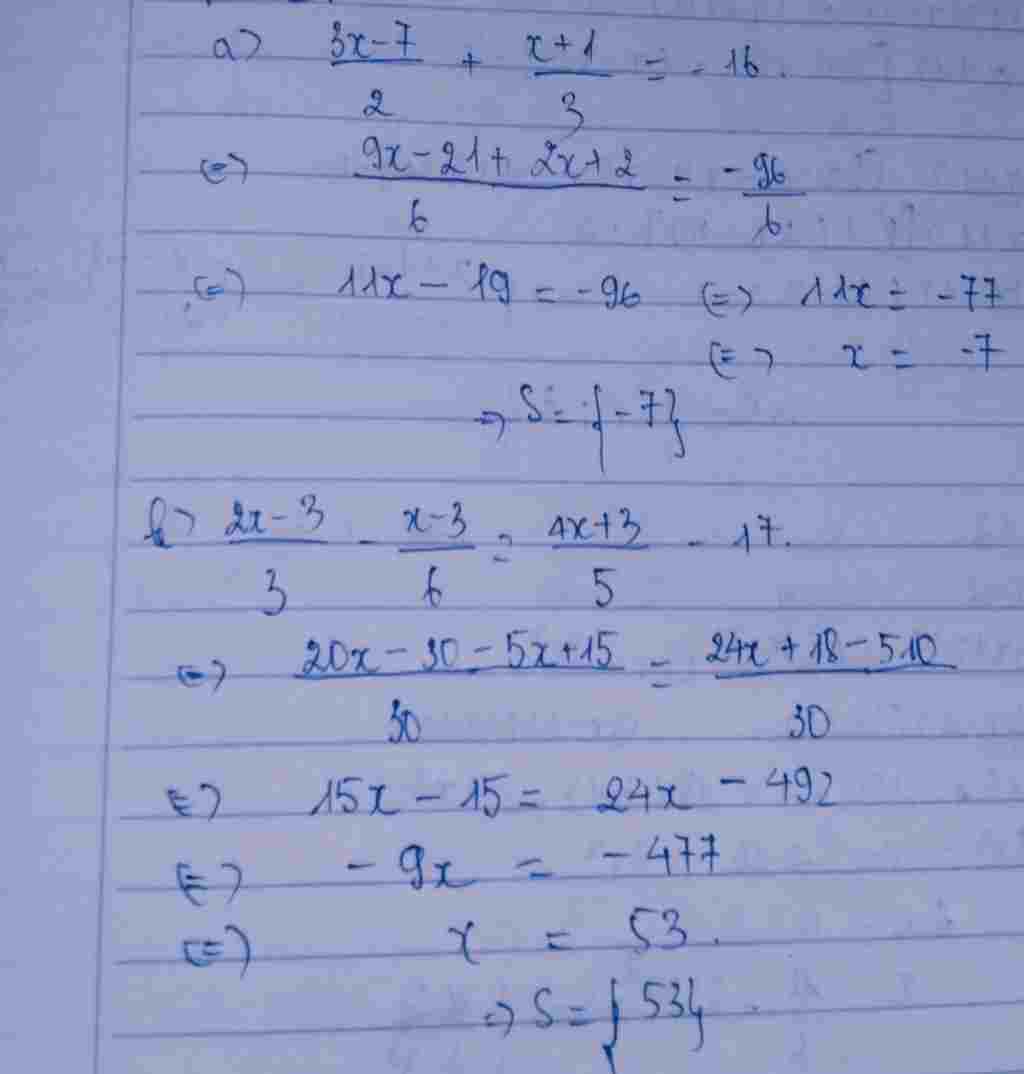 a> (3x-7)/2 + (x+1)/3 = -16.
(=) (9x-21+2x+2)/6 = -96/6.
(=) 11x - 19 = -96 (=) 11x = -77
(=) x = -7
=> S = {-7}
b> (2x-3)/3 - (x-3)/6 = (4x+3)/5 - 17.
(=) (20x-30-5x+15)/30 = (24x+18-510)/30
(=) 15x - 15 = 24x - 492
(=) -9x = -477
(=) x = 53.
=> S = {53}